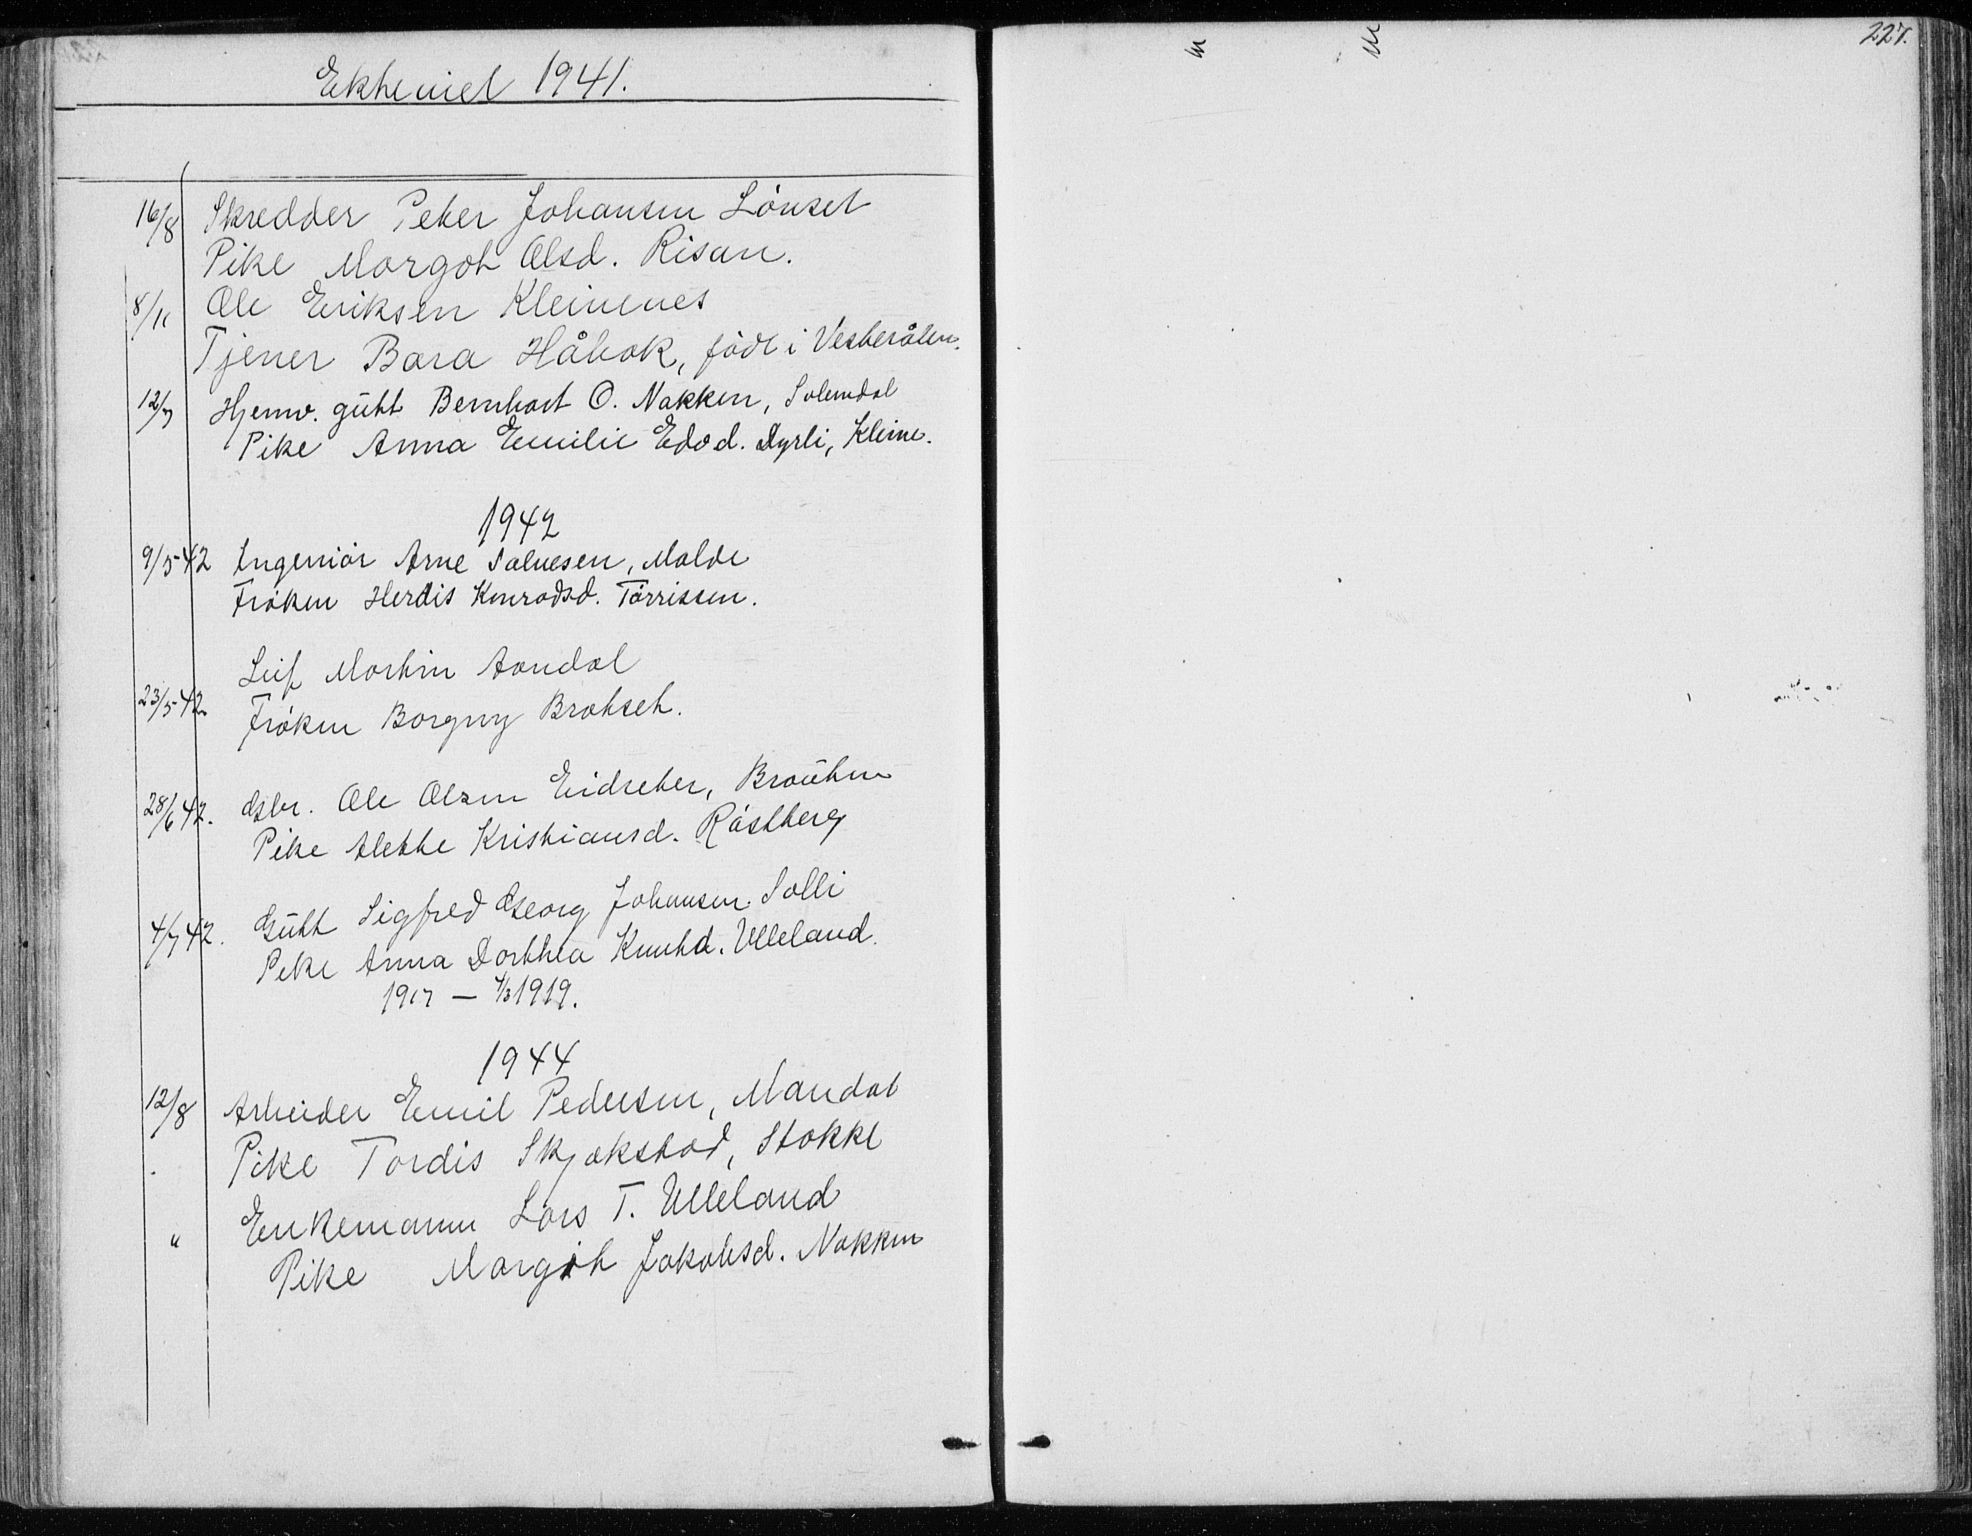 227.
Ekteviet 1941.
16/8 Skredder Peter Johansen Lönset
Pike Margot Olsd. Risan.
8/11 Ole Eriksen Kleivenes
Tjener Bara Håkok, född i Vesterålen.
12/7 Hjemv. gutt Bernhart O. Nakken, Solemdal
Pike Anna Emilie Edv.d. Dyrli, Kleive.
1942
9/5-42 Ingeniör Arne Salvesen, Molde
Fröken Herdis Konradsd. Törrissen.
Leif Martin Aandal
23/5-42 Fröken Borgny Brakseth.
28/6 42. Gbr. Ole Olsen Eidseter,
Pike Alette Kristiansd. Röstberg
4/7 42. Gutt Sigfred Georg Johansen Solli
Pike Anna Dorthea Knutsd. Ulleland.
1917 — 4/3 1919.
1944
12/8 Arbeider Emil Pedersen, Mandal
Pike Tordis Skjækstad, Stokke
" Enkemann Lars T. Ulleland
Pike Margith Jakobsd. Nakken